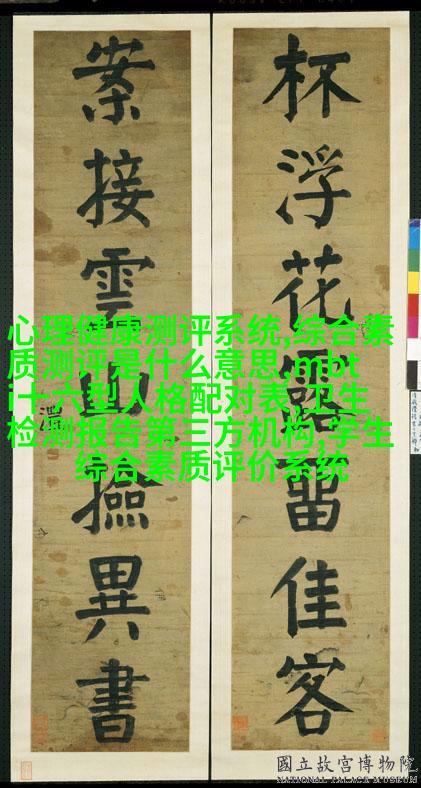 杯浮花露留佳客
案接雲撿異書
心理健康测评系统,综合素
质测评是什么意思,mbt
i十六型人格配对表,卫生
检测报告第三方机构,学生
综合素质评价系统
國立故宮博物院
NATIONAL PALACE MUSEUM